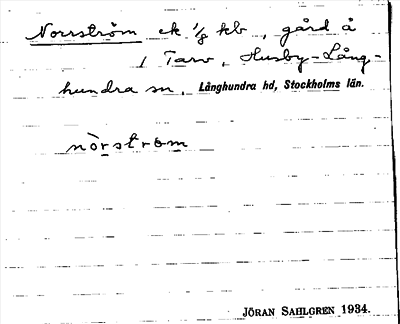 Norrström ek 1/8 kb, gård å
1 Tarv, Husby-Lång-
hundra sn, Långhundra hd, Stockholms län.
nòrstrøm
JÖRAN SAHLGREN 1934.